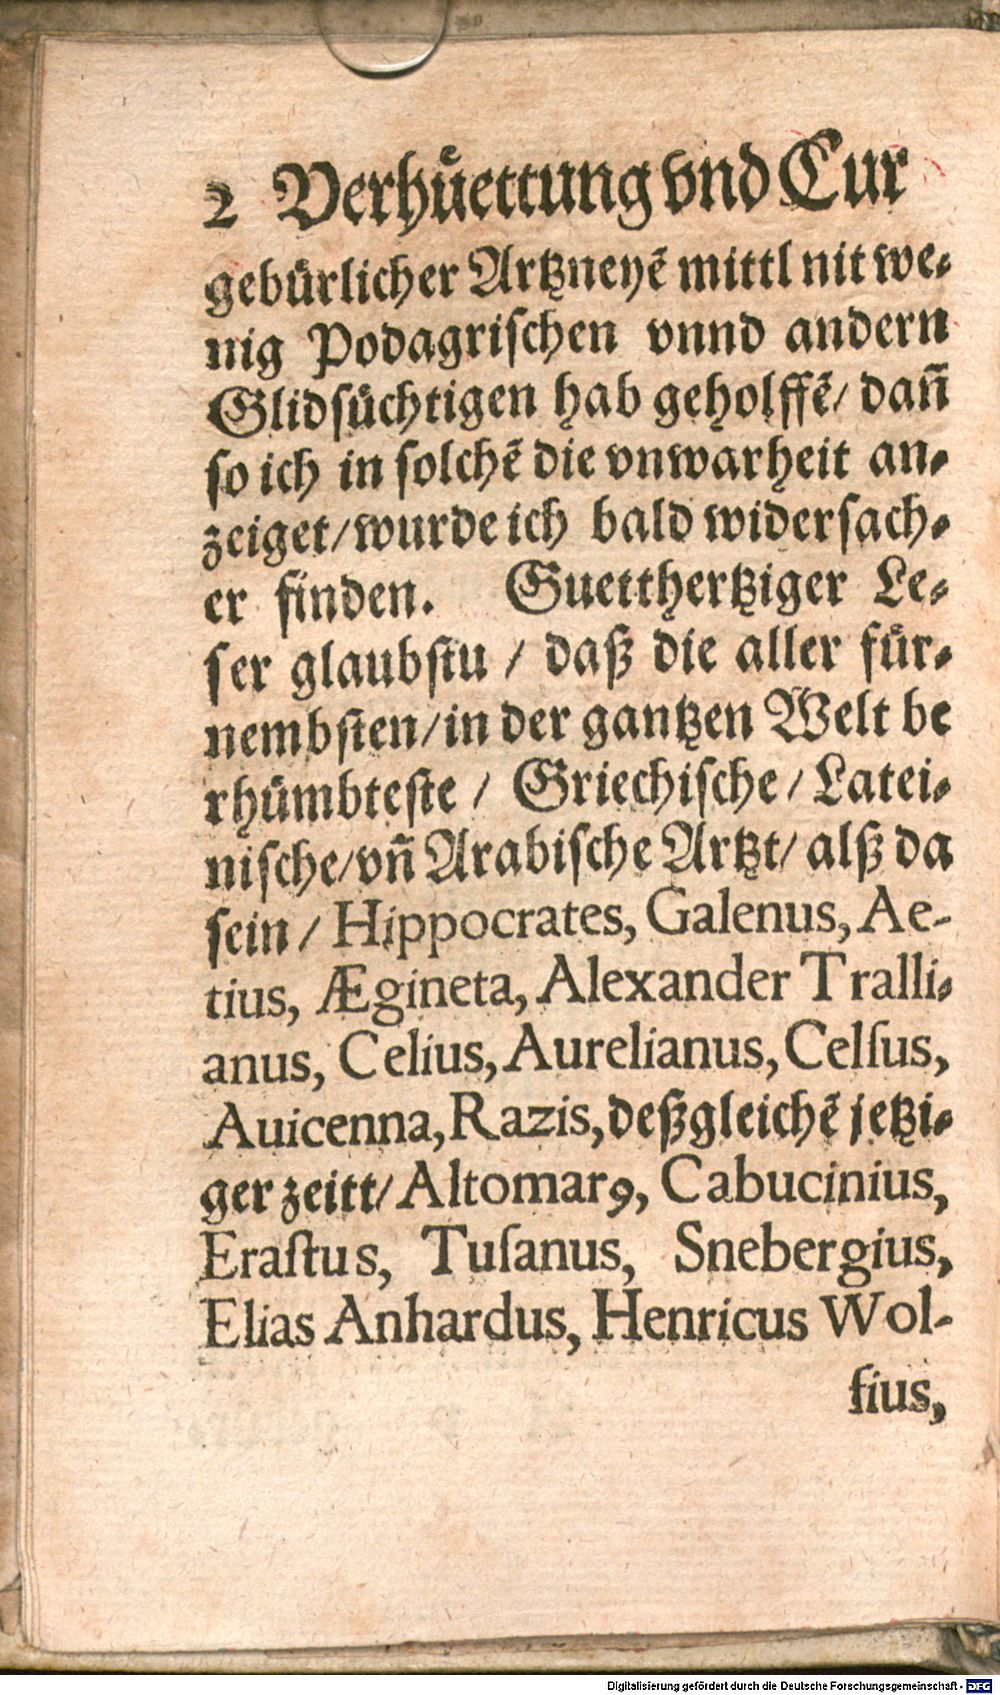 2 Verhuͤettung vnd Cur
gebuͤrlicher Artzneyẽ mittl nit we⸗
nig Podagrischen vnnd andern
Glidsuͤchtigen hab geholffẽ/ dañ
so ich in solchẽ die vnwarheit an⸗
zeiget/wurde ich bald widersach⸗
er finden. Guetthertziger Le⸗
ser glaubstu / daß die aller fuͤr⸗
nembsten/in der gantzen Welt be
rhuͤmbteste / Griechische / Latei⸗
nische/vñ Arabische Artzt/ alß da
sein / Hippocrates, Galenus, Ae-
tius, Ægineta, Alexander Tralli⸗
anus, Celius, Aurelianus, Celſus,
Auicenna, Razis, deßgleichẽ jetzi⸗
ger zeitt/ Altomarꝰ, Cabucinius,
Eraſtus, Tuſanus, Snebergius,
Elias Anhardus, Henricus Wol-
fius,
Digitalisierung gefördert durch die Deutsche Forschungsgemeinschaft - DFG